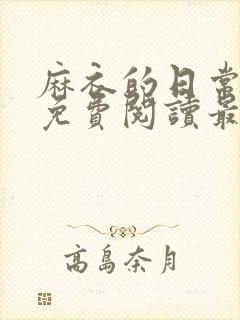 麻衣的日常
免費閱讀最
高島奈月